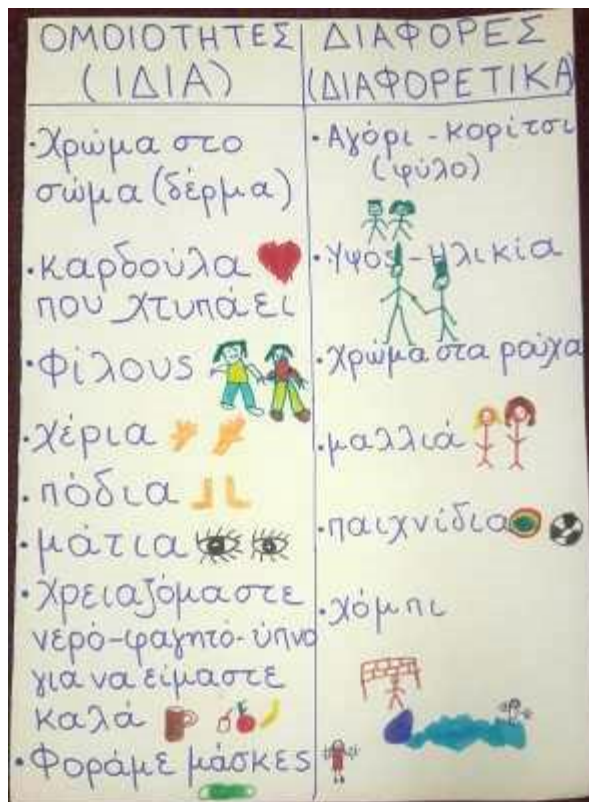 ΟΜΟΙΟΤΗΤΕΣ
(ΙΔΙΑ)
• Χρώμα στο
σώμα (δέρμα)
• καρδούλα
που χτυπάει
• Φίλους
• χέρια
• πόδια
• μάτια
• Χρειαζόμαστε
νερό-φαγητό-ύπνο
για να είμαστε
καλά
• Φοράμε μάσκες
ΔΙΑΦΟΡΕΣ
(ΔΙΑΦΟΡΕΤΙΚΑ)
• Αγόρι - κορίτσι
(φύλο)
• Υψος - Ηλικία
• Χρώμα στα ρούχα
• μαλλιά
• παιχνίδια
• χόμπι